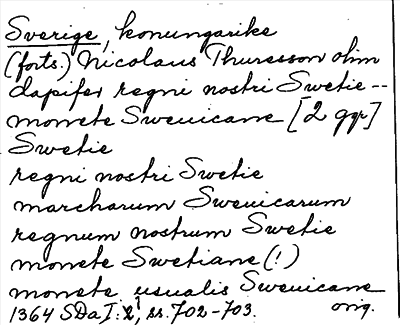 Sverige, konungarike
(forts.) Nicolaus Thuresson olim
dapifer regni nostri Swetie --
monete Sweuicane [2 ggr]
Swetie
regni nostri Swetie
marcharum Sweuicarum
regnum nostrum Swetie
monete Swetiane (!)
monete usualis Sweuicane
1364 SDa I:2, ss. 702-703. orig.